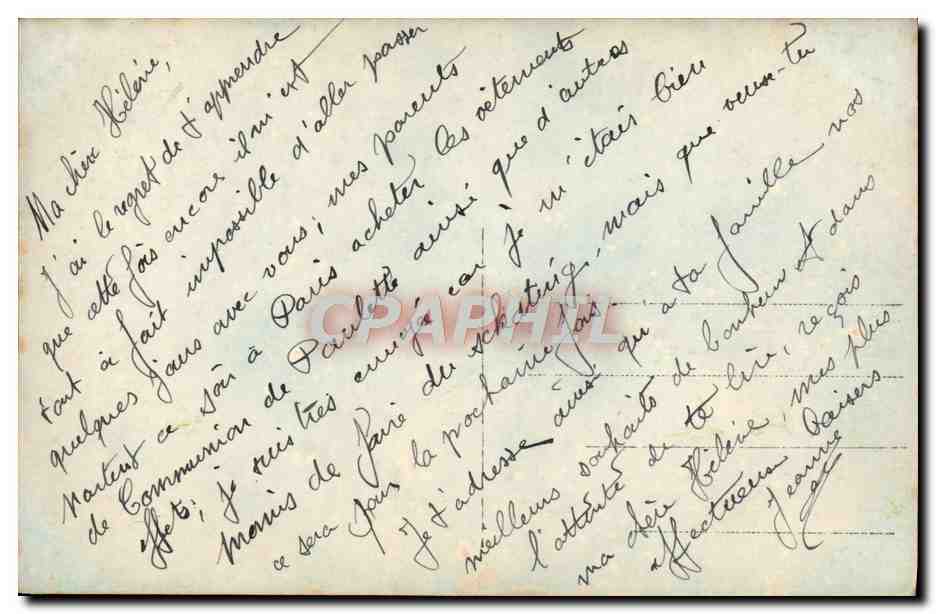 Ma chère Hélène,
J'ai le regret de t'apprendre
que cette fois encore il m'est
tout à fait impossible d'aller passer
quelques jours avec vous; mes parents
partent ce soir à Paris acheter les vêtements
de Communion de Paulette ainsi que d'autres
effets; je suis très ennuyé car je m'étais bien
promis de faire du schating, mais que veux-tu
ce sera pour la prochaine fois.
Je t'adresse ainsi qu'à ta famille nos
meilleurs souhaits de bonheur et dans
l'attente de te lire, reçois
ma chère Hélène, mes plus
affectueux baisers
Jeanne
CPAPHIL